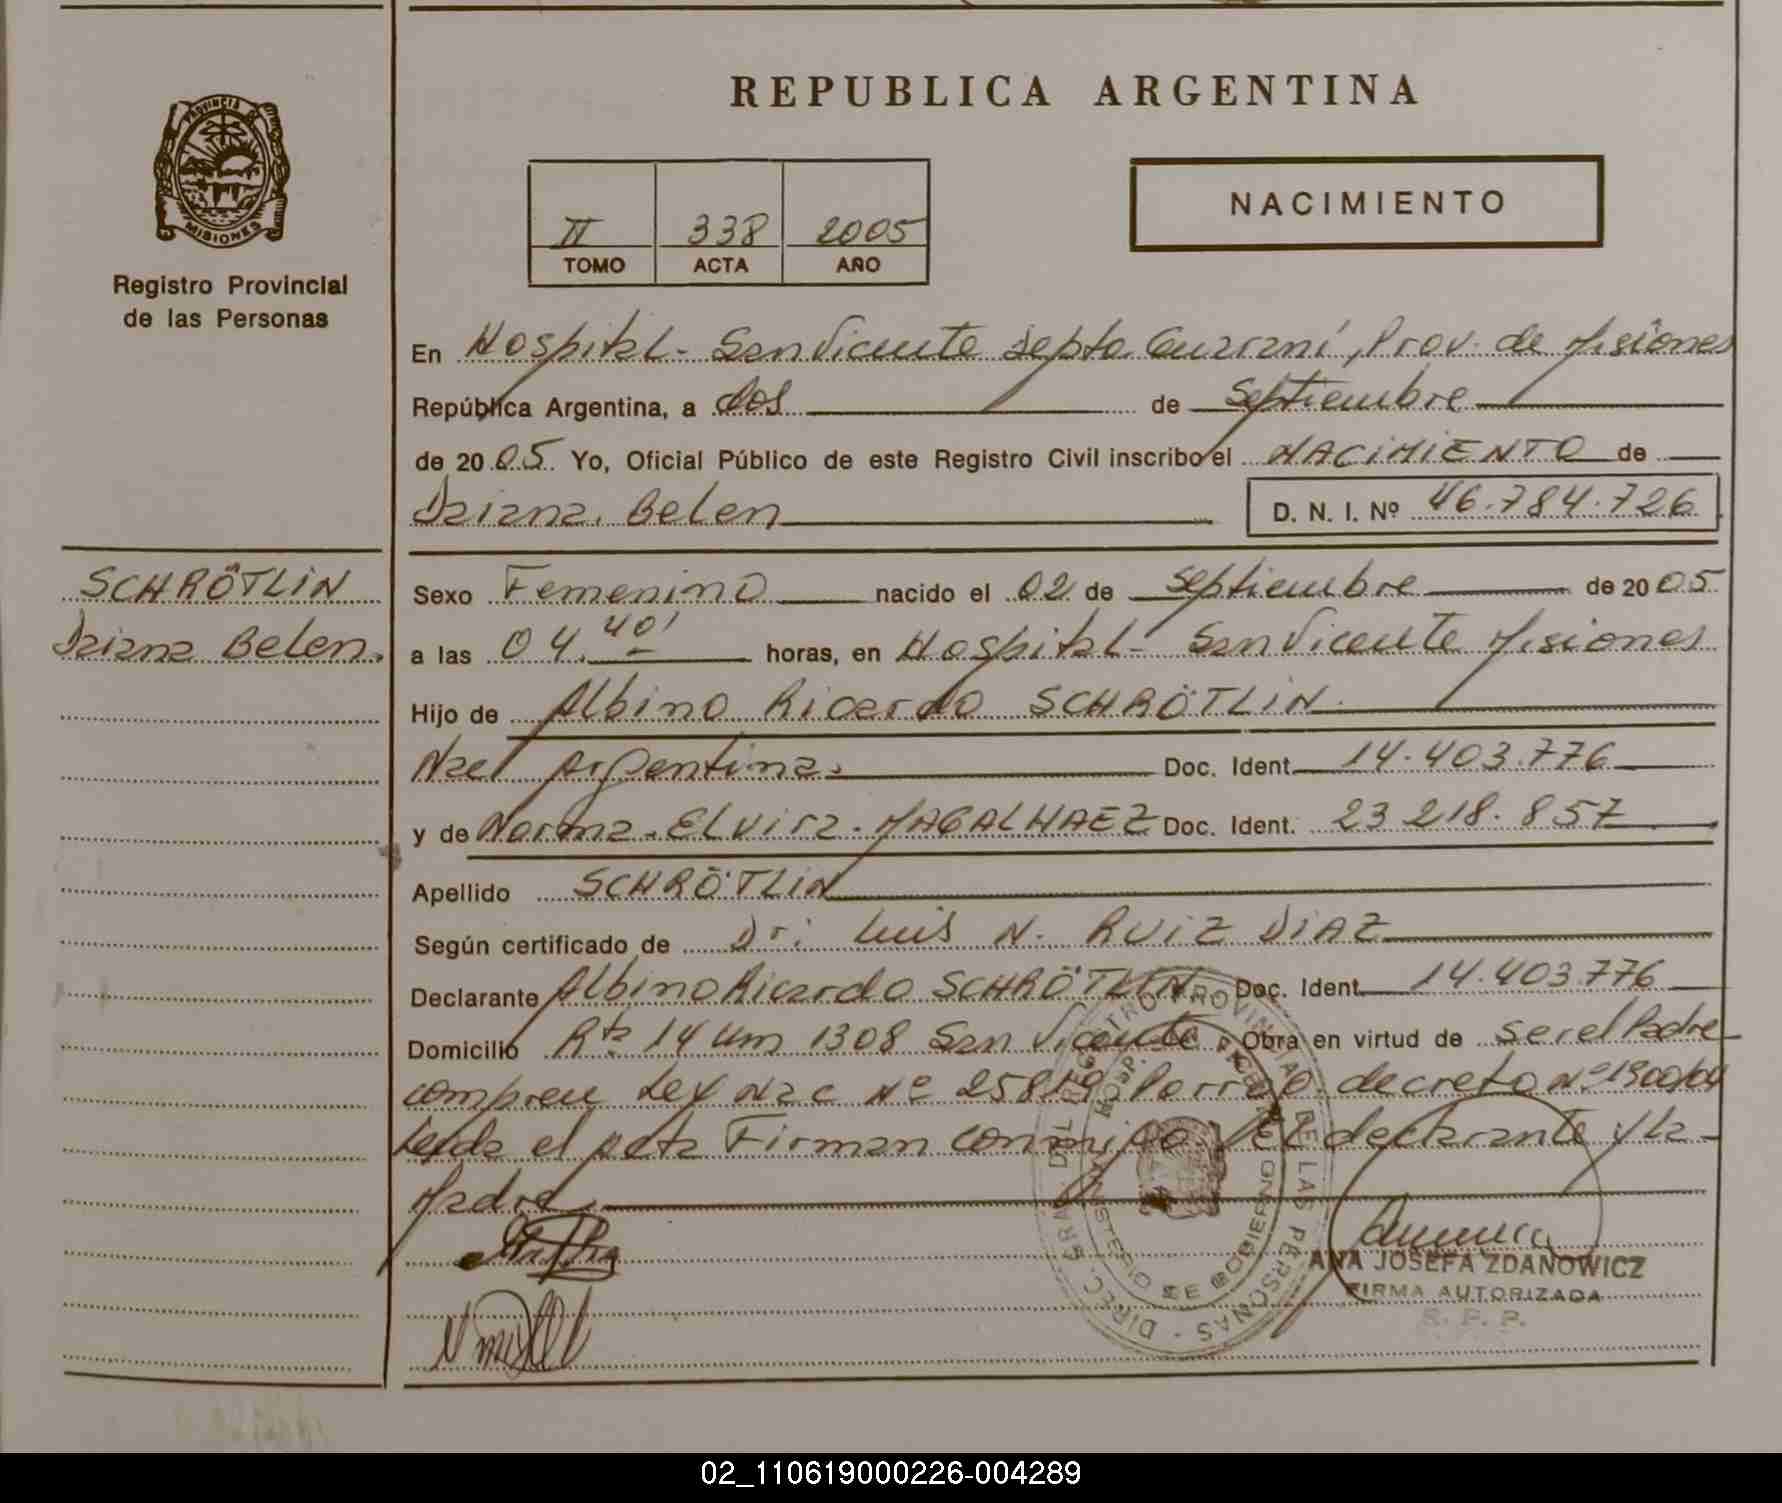 PROVINCIA DE
MISIONES
Registro Provincial
de las Personas
REPUBLICA ARGENTINA
II 338 2005
TOMO ACTA AÑO
NACIMIENTO
En Hospital - San Vicente Depto. Guaraní, Prov. de Misiones
República Argentina, a dos de Septiembre
de 20 05 Yo, Oficial Público de este Registro Civil inscribo el NACIMIENTO de
Daiana. Belen D. N. I. Nº 46.784.726
SCHRÖTLIN
Daiana Belen.
Sexo Femenino nacido el 02 de Septiembre de 20 05
a las 04.40' horas, en Hospital - San Vicente Misiones
Hijo de Albino Ricardo SCHRÖTLIN.
Nac Argentina. Doc. Ident. 14.403.776
y de Norma. Elvira. MAGALHAEZ Doc. Ident. 23 218.857
Apellido SCHRÖTLIN
Según certificado de Dr: Luis N. RUIZ DIAZ
Declarante Albino Ricardo SCHRÖTLIN Doc. Ident. 14.403.776
Domicilio Rta 14 Km 1308 San Vicente. Obra en virtud de ser el Padre
Ley Nac Nº decreto Nº 1300/04
Leida el acta Firman conmigo el declarante y la
Madre.
REGISTRO PROVINCIAL DE LAS PERSONAS - DIREC. GRAL. DEL
MINISTERIO DE GOBIERNO
ANA JOSEFA ZDANOWICZ
FIRMA AUTORIZADA
R. P. P.
02_110619000226-004289